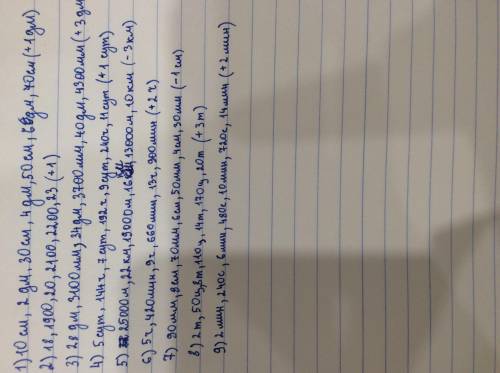 1) 10 см, 2 дм, 30 см, 4 дм, 50 см, 6 дм, 70 см (+1 дм)
2) 18, 1900, 20, 2100, 2200, 23 (+1)
3) 28 дм, 3100 мм, 34 дм, 3700 мм, 40 дм, 4300 мм (+3 дм
4) 5 сут, 144 ч, 7 сут, 192 ч, 9 сут, 240 ч, 11 сут (+1 сут)
5) 25000 м, 22 км, 19000 м, 16 км, 13000 м, 10 км (-3 км)
6) 5 ч, 420 мин, 9 ч, 660 мин, 13 ч, 900 мин (+2 ч)
7) 90 мм, 8 см, 70 мм, 6 см, 50 мм, 4 см, 30 мм (-1 см)
8) 2 т, 50 ц, 8 т, 110 ц, 14 т, 170 ц, 20 т (+3 т)
9) 2 мин, 240 с, 6 мин, 480 с, 10 мин, 720 с, 14 мин (+2 мин)